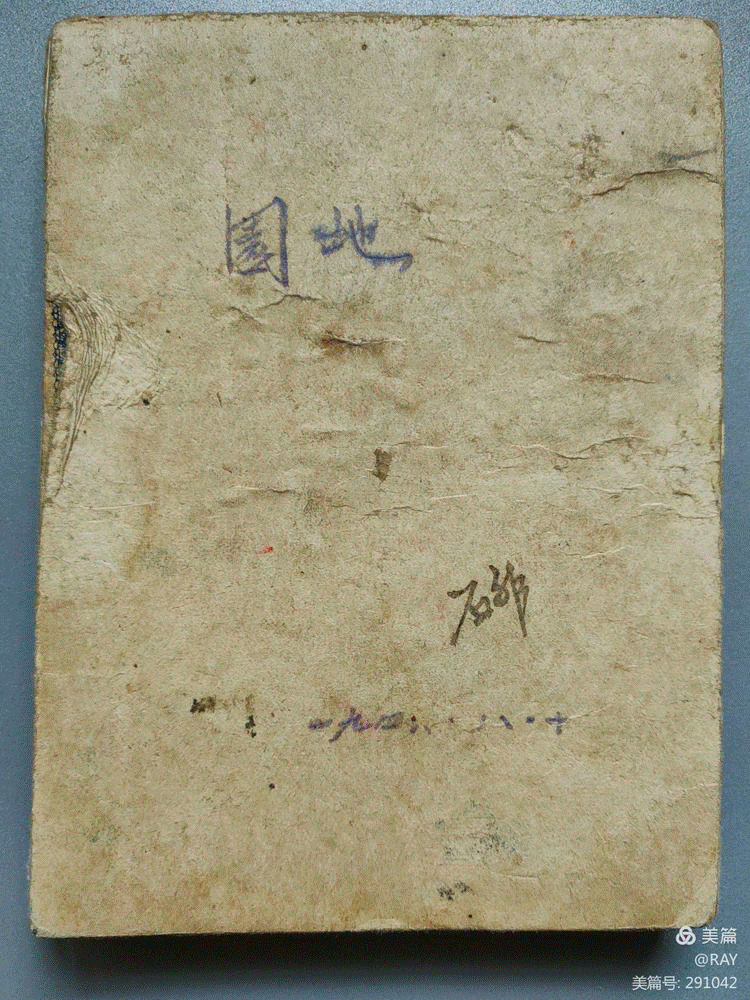 園地
一九四六·八·十
美篇
@RAY
美篇号: 291042